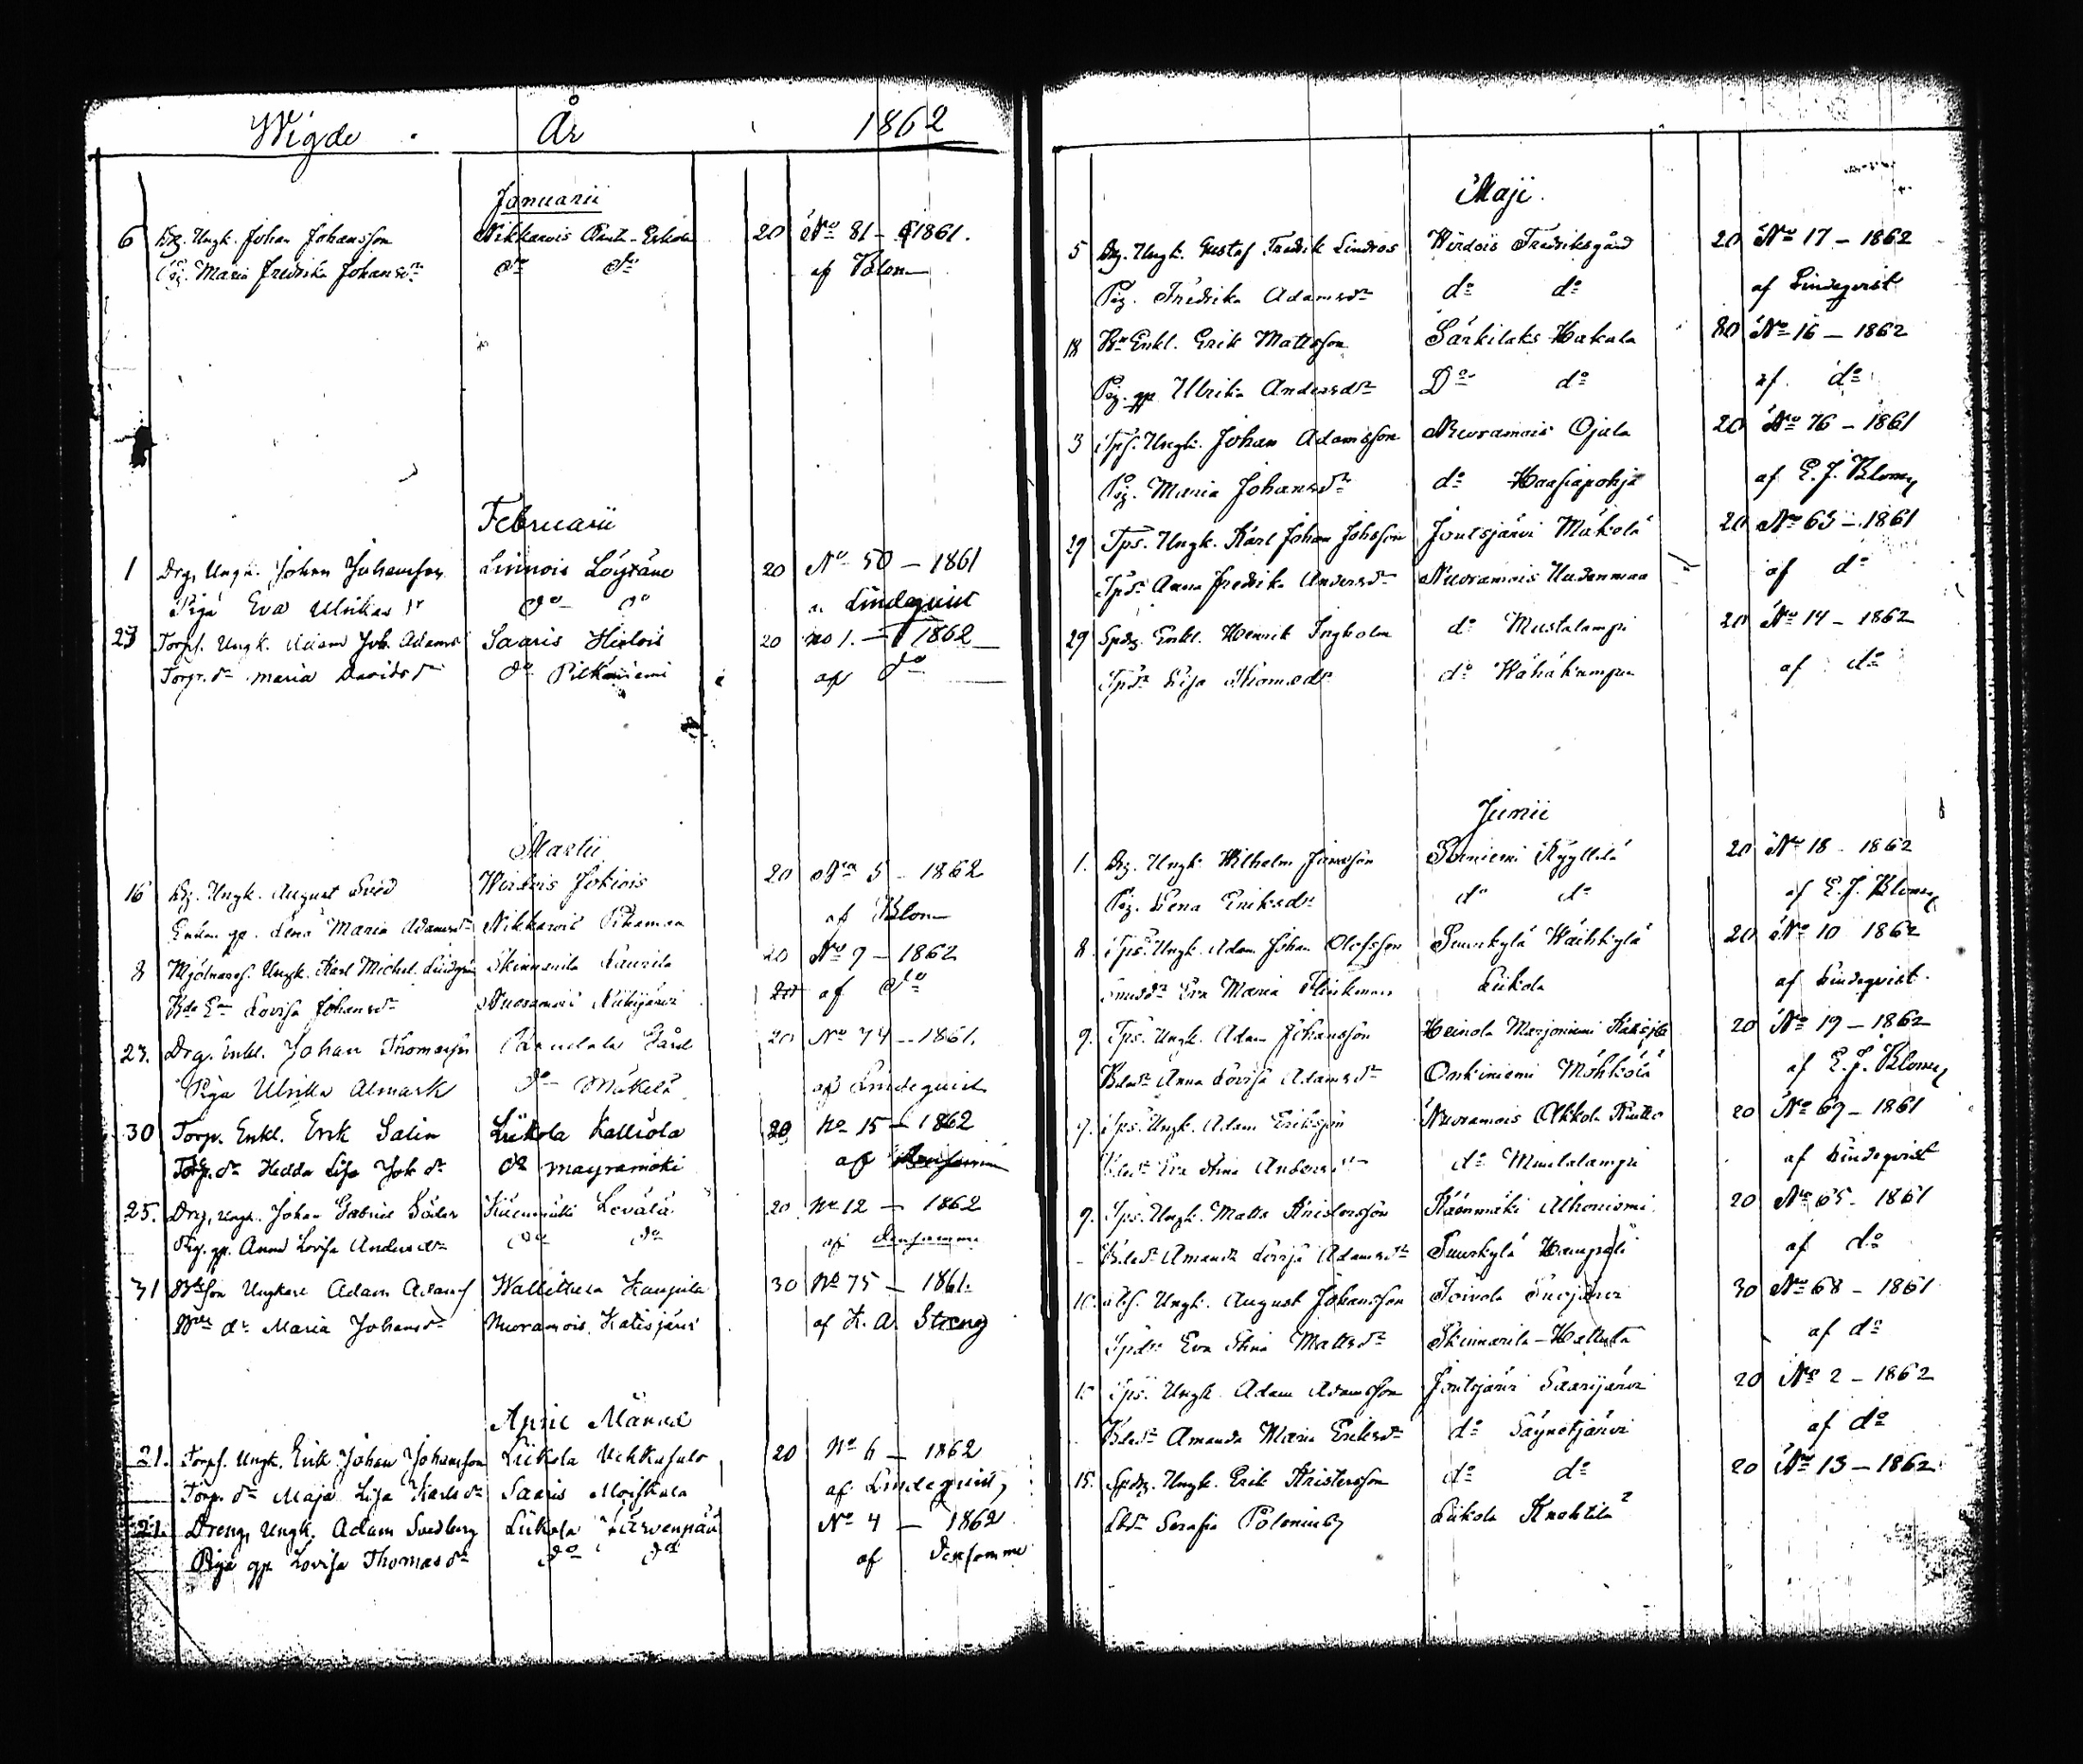 Wigde År 1862
Januarii
6 Drg. Ungk. Johan Johansson Nikkarois Anti-Eskola 20 No 81 - 1861.
Pig. Maria Fredrika Johansdr do do af Blom
Februarii
1 Drg. Ungk. Johan Johansson Linnois Löyräne 20 No 50 - 1861
Piga Eva Ulrikas dr do do a Lindequist
23 Torps. Ungk. Adam Joh. Adams Saaris Hielois 20 no 1. - 1862
Torpr. dr Maria Davidsdr do Pitkäniemi af do
Martii
16 Drg. Ungk. August Sved Wirdois Jokiois 20 No 5 - 1862
Enkan gp. Lena Maria Adamsdr Nikkarois Pihamaa af Blom
8 Mjölnares. Ungk. Karl Michel Lindgren Skinnarila Laurila 20 No 9 - 1862
Bda Enk Lovisa Johansdr Nuoramois 20 af do
23. Drg. Enkl. Johan Thomasson Gård 20 No 74 - 1861.
Piga Ulrika Almark do Mäkelä af Lindequist
30 Torp. Enkl. Erik Salin Liikola Kalliola 20 No 15 - 1862
Torp. dr Hedda Lisa Joh dr do Mäyrämäki af
25. Drg. Ungk. Johan Gabriel Söder Levälä 20 No 12 - 1862
Pig. gp. Anna Lovisa Andersdr do do af densamme
31 Bdeson Ungkarl Adam Adams Wallittula Kaupila 30 No 75 - 1861.
Bde dr Maria Johansdr Nuoramois Katisjärvi af K. A. Streng
April Månad
21. Torps. Ungk. Erik Johan Johansson Liikola Uckkasalo 20 No 6 - 1862
Torp. dr Maja Lisa Karlsdr Saaris Moiskala af Lindequist
21. Dreng Ungk. Adam Svedberg Liikola Järvenpää No 4 - 1862
Piga gp. Lovisa Thomasdr do do af Densamme
Maji.
5 Drg. Ungk. Gustaf Fredrik Lindros Wirdois Fredriksgård 20 No 17 - 1862
Pig. Fredrika Adamsdr do do af Lindeqvist
18 Bde Enkl. Erik Mattsson Särkilaks Hakala 80 No 16 - 1862
Pig. gp Ulrika Andersdr Do do af do
3 Tps. Ungk. Johan Adamsson Nuoramois Ojala 20 No 76 - 1861
Pig. Maria Johansdr do Haasiapohja af E. J. Blom
29 Tps. Ungk. Karl Johan Johsson Joutsjärvi Mäkolä 20 No 63 - 1861
Tpdr Anna Fredrika Andersdr Nuoramois Uudenmaa af do
29 Spdrg. Enkl. Henrik Ingholm do Mustalampi 20 No 14 - 1862
Tpdr Lisa Thomsdr do Wähäkangas af do
Junii
1. Drg. Ungk. Wilhelm Jansson Soiniemi Kyyllilä 20 No 18 - 1862
Pig. Lena Eriksdr do do af E. J. Blom
8 Tps. Ungk. Adam Johan Olofsson Suurkylä Wäihkylä 20 No 10 1862
Smeddr Eva Maria Flinkman Liikola af Lindeqvist.
9. Tps. Ungk. Adam Johansson Heinola Marjoniemi 20 No 19 - 1862
Bdedr Anna Lovisa Adamsdr Onkiniemi Möhkölä af E. J. Blom
9. Tps. Ungk. Adam Eriksson Nuoramois Okkola 20 No 69 - 1861
Bdedr Eva Stina Andersdr do Mustalampi af Lindeqvist
9. Tps. Ungk. Matts Kristersson Käenmäki Alhoniemi 20 No 65 - 1861
Bdedr Amanda Lovisa Adamsdr Suurkylä af do
10. Ungk. August Johansson Toivola 30 No 68 - 1861
Tpdr Eva Stina Mattsdr Skinnarila - Hallusta af do
15 Tps. Ungk. Adam Adamsson Joutsjärvi Saarijärvi 20 No 2 - 1862
Bdedr Amanda Maria Eriksdr do Säynetjärvi af do
15. Spdrg. Ungk. Erik Kristersson do do 20 No 13 - 1862
Serafia Liikola Knehtilä